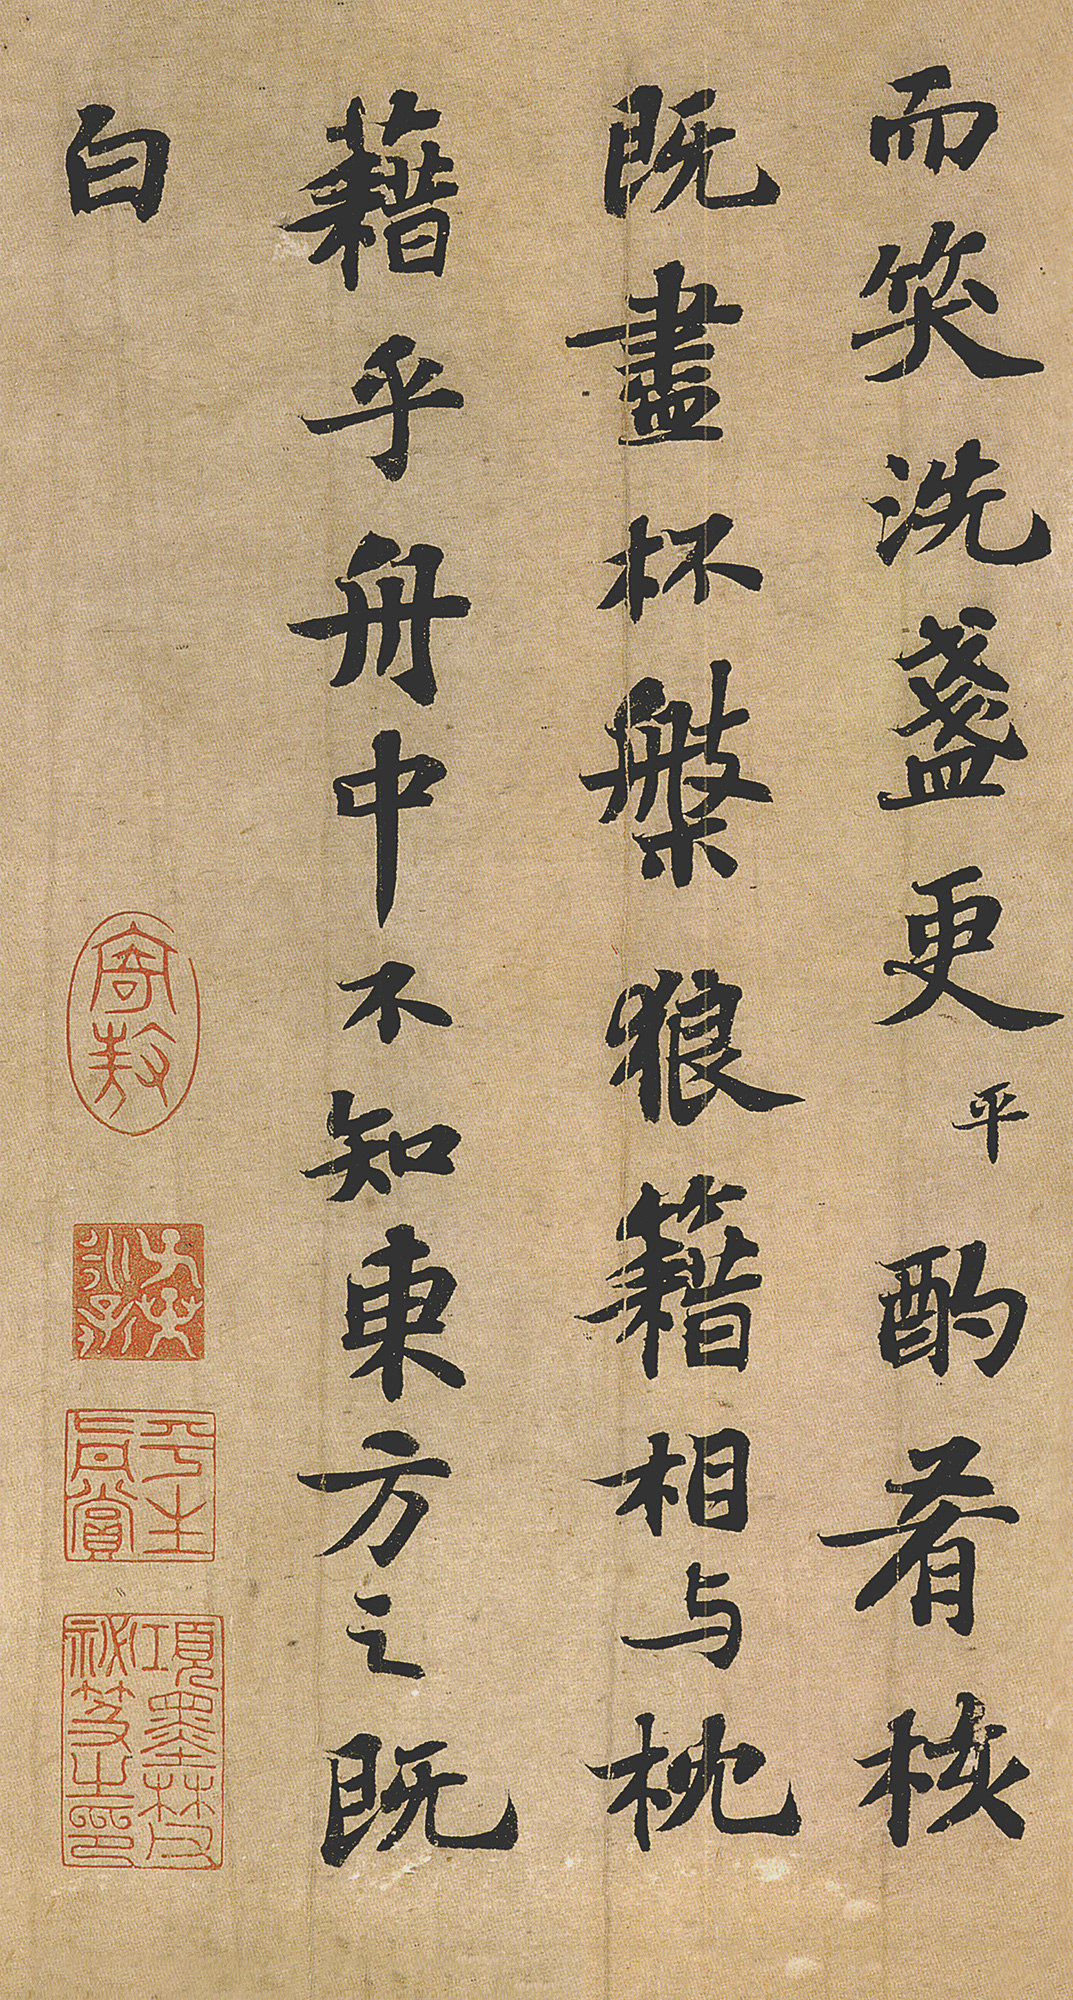 而笑洗盞更平酌肴核
既盡杯槃狼籍相與枕
藉乎舟中不知東方之既
白
平生真賞
項墨林父祕笈之印